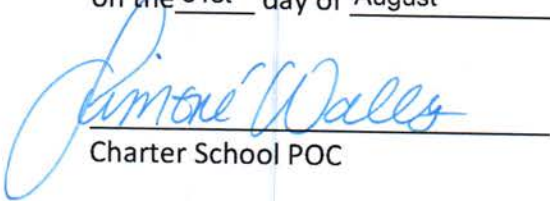 on the 31st day of August
Simoné Walls
Charter School POC